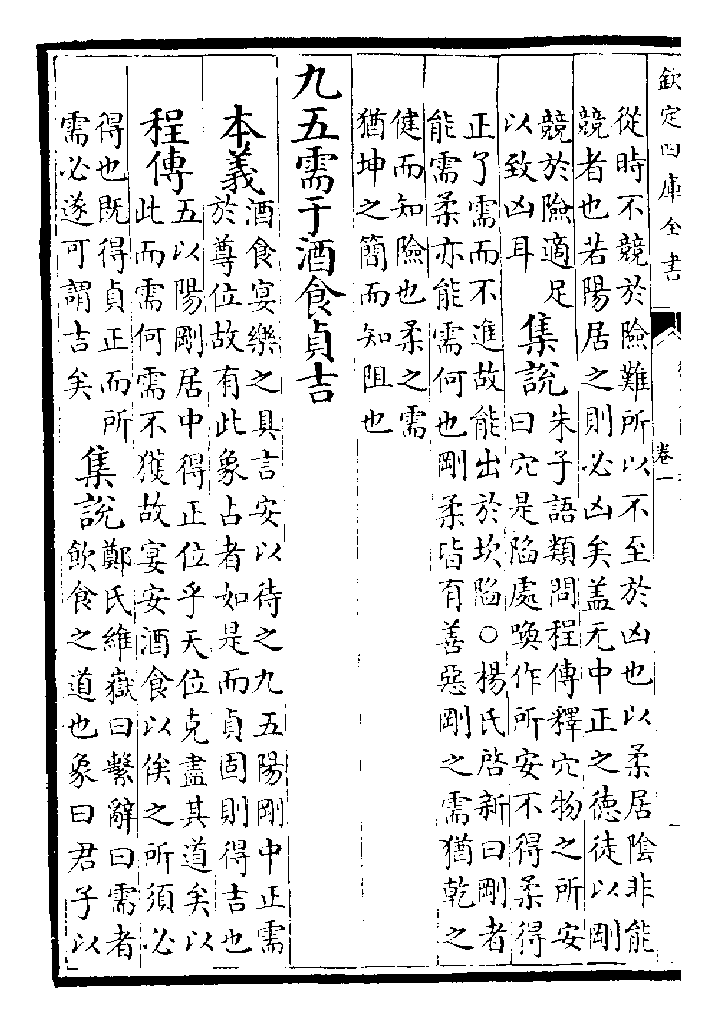 欽定四庫全書
卷一
從時不競於險難所以不至於凶也以柔居陰非能
競者也若陽居之則必凶矣盖无中正之德徒以剛
競於險適足
以致凶耳
集說
朱子語類問程傳釋穴物之所安
曰穴是陷處喚作所安不得柔得
正了需而不進故能出於坎陷○楊氏啓新曰剛者
能需柔亦能需何也剛柔皆有善惡剛之需猶乾之
健而知險也柔之需
猶坤之簡而知阻也
九五需于酒食貞吉
本義
酒食宴樂之具言安以待之九五陽剛中正需
於尊位故有此象占者如是而貞固則得吉也
程傳
五以陽剛居中得正位乎天位克盡其道矣以
此而需何需不獲故宴安酒食以俟之所須必
得也既得貞正而所
需必遂可謂吉矣
集說
鄭氏維嶽曰繫辭曰需者
飲食之道也象曰君子以